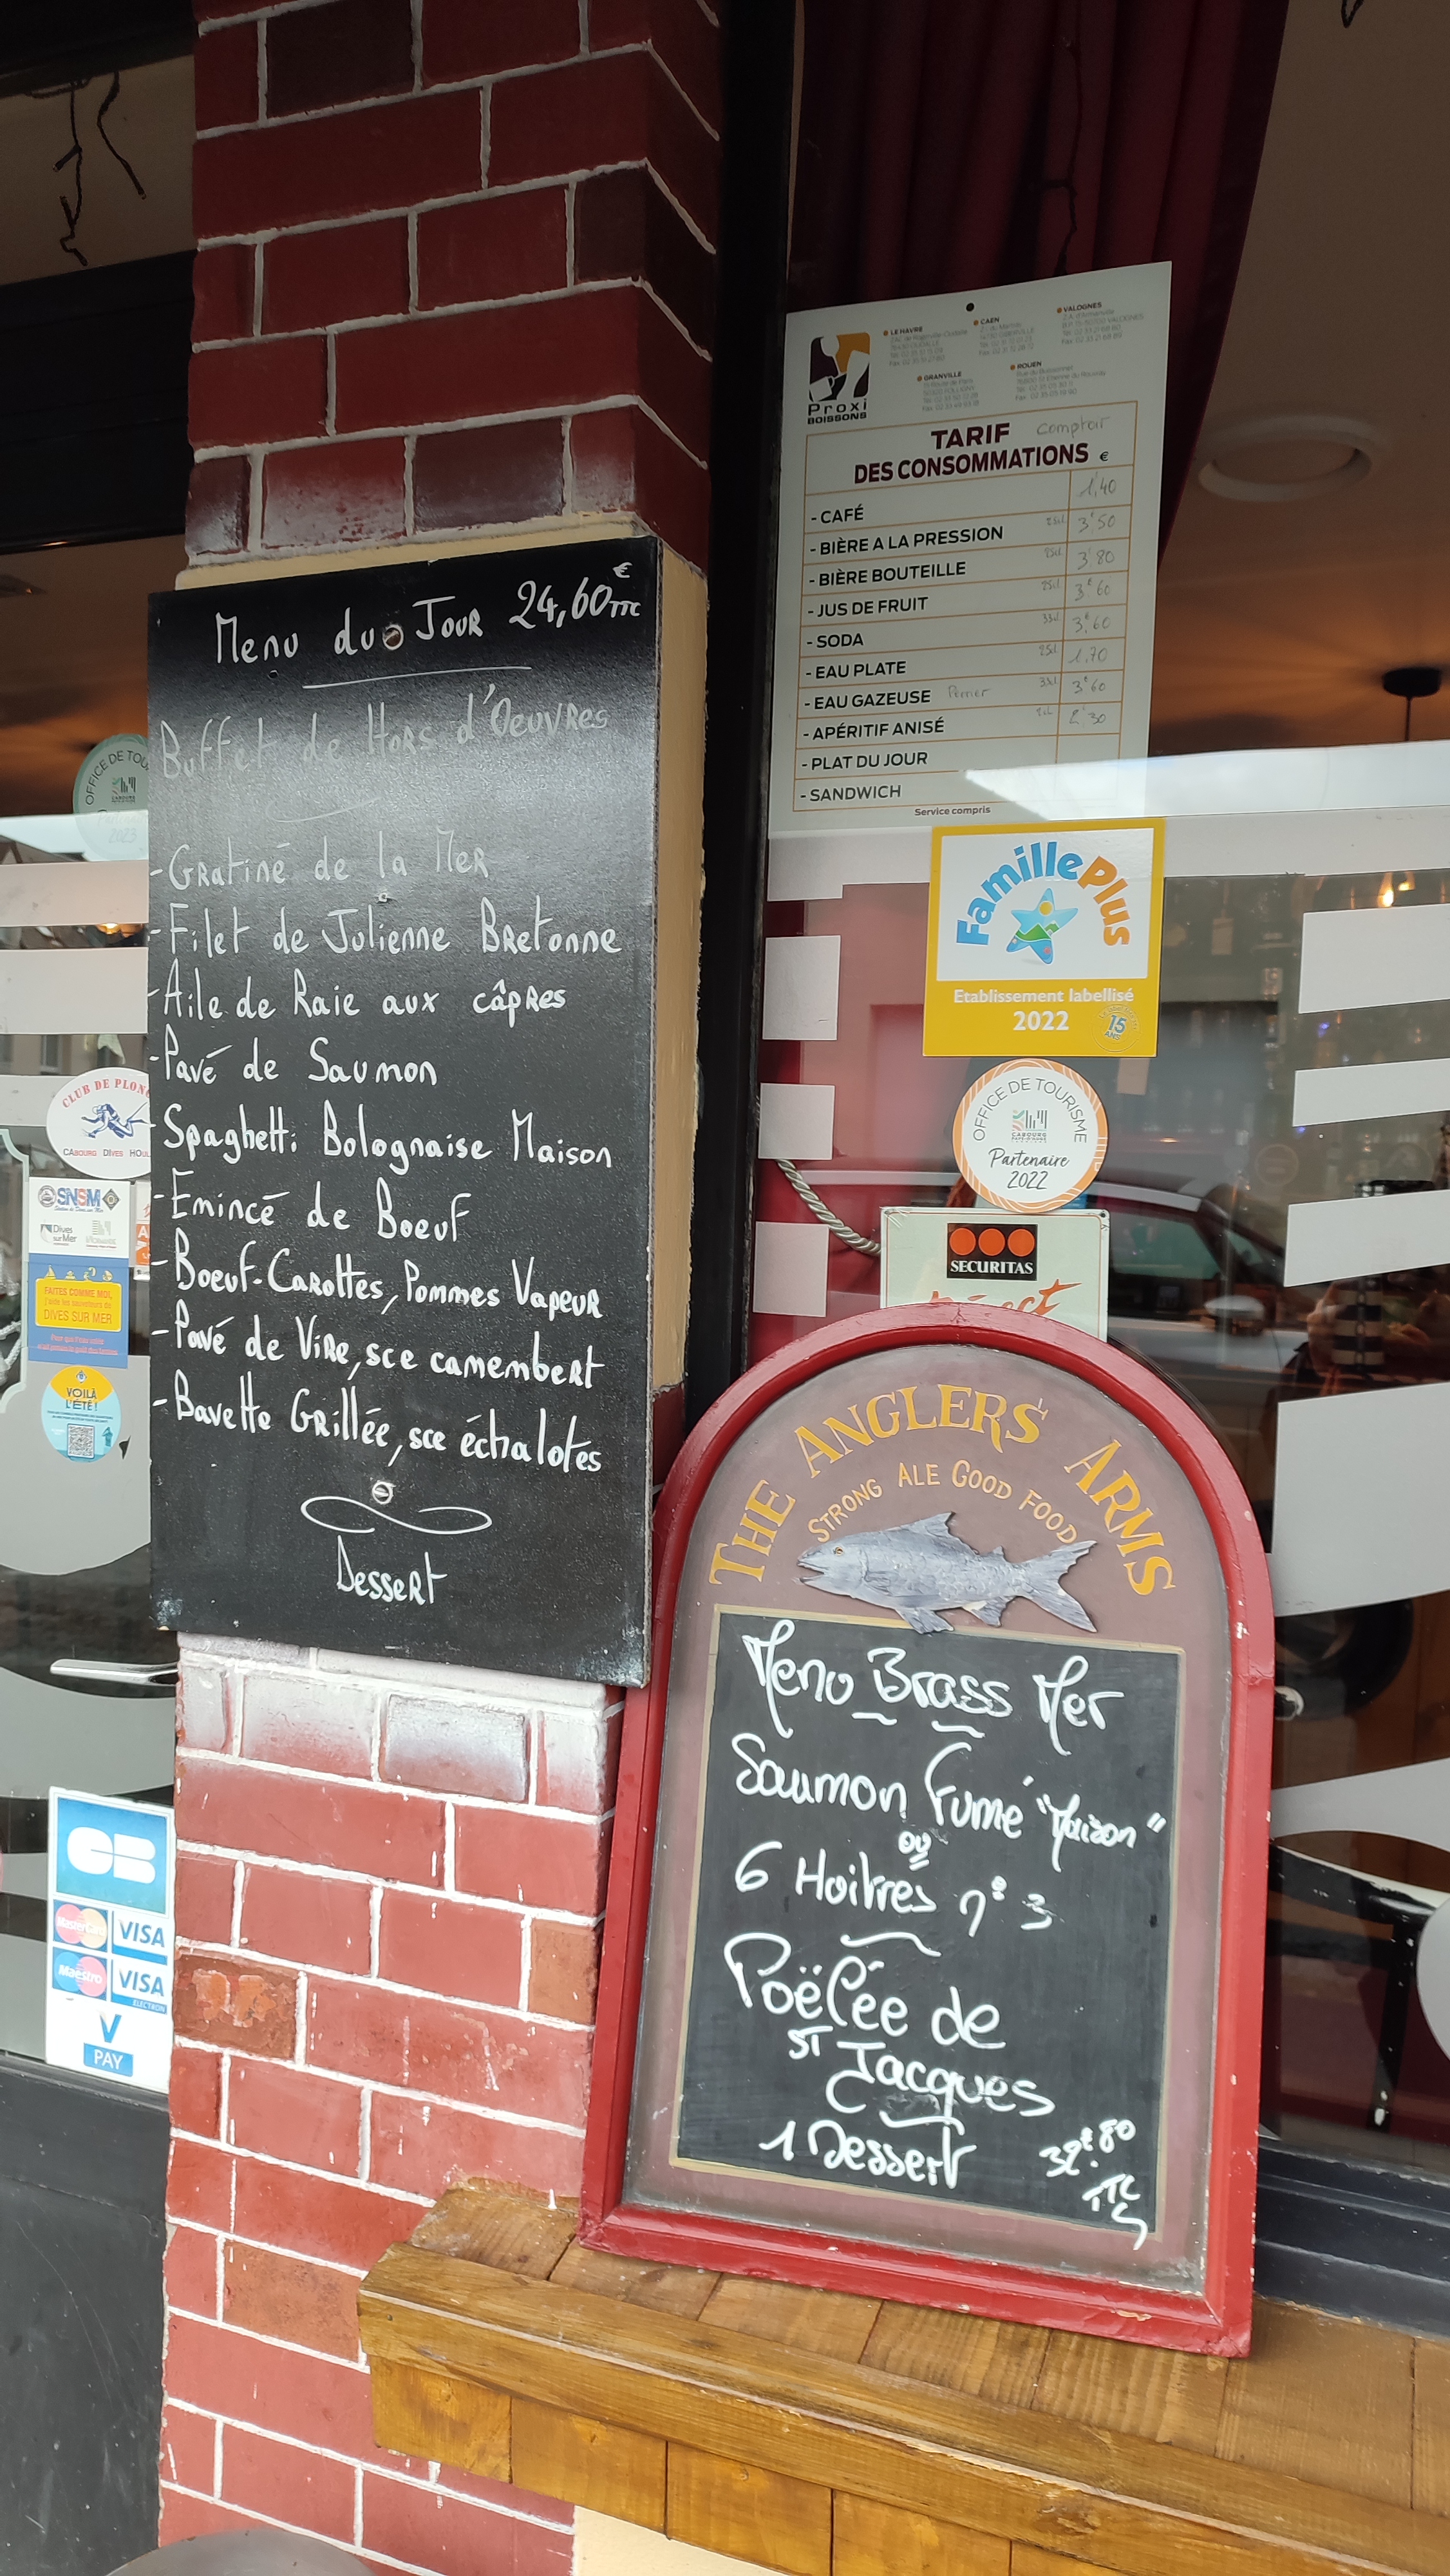 Menu du Jour 24,60€ TTC
Buffet de Hors d'Oeuvres
-Gratiné de la Mer
-Filet de Julienne Bretonne
-Aile de Raie aux câpres
-Pavé de Saumon
-Spaghetti Bolognaise Maison
-Emincé de Boeuf
-Boeuf-Carottes, Pommes Vapeur
-Pavé de Vire, sce camembert
-Bavette Grillée, sce échalotes
Dessert
Proxi
BOISSONS
LE HAVRE
CAEN
VALOGNES
GRANVILLE
ROUEN
TARIF Comptoir
DES CONSOMMATIONS €
- CAFÉ 1,40
- BIÈRE A LA PRESSION 25cl 3€50
- BIÈRE BOUTEILLE 25cl 3€80
- JUS DE FRUIT 25cl 3€60
- SODA 33cl 3€60
- EAU PLATE 25cl 1,70
- EAU GAZEUSE Perrier 33cl 3€60
- APÉRITIF ANISÉ 2cl 2€30
- PLAT DU JOUR
- SANDWICH
Service compris
FamillePlus
Etablissement labellisé
2022
15
ANS
OFFICE DE TOURISME
CABOURG
Partenaire
2022
SECURITAS
Direct
THE ANGLERS' ARMS
STRONG ALE GOOD FOOD
Menu Brass Mer
Saumon Fumé "Maison"
ou
6 Huitres n° 3
Poëlée de
ST Jacques
1 Dessert 32€80
TTC
OFFICE DE TOU
CABOURG
2023
CLUB DE PLONG
CABOURG DIVES HOUL
SNSM
Dives
sur Mer
FAITES COMME MOI,
DIVES SUR MER
VOILÀ
L'ÉTÉ !
CB
MasterCard VISA
Maestro VISA
ELECTRON
V
PAY